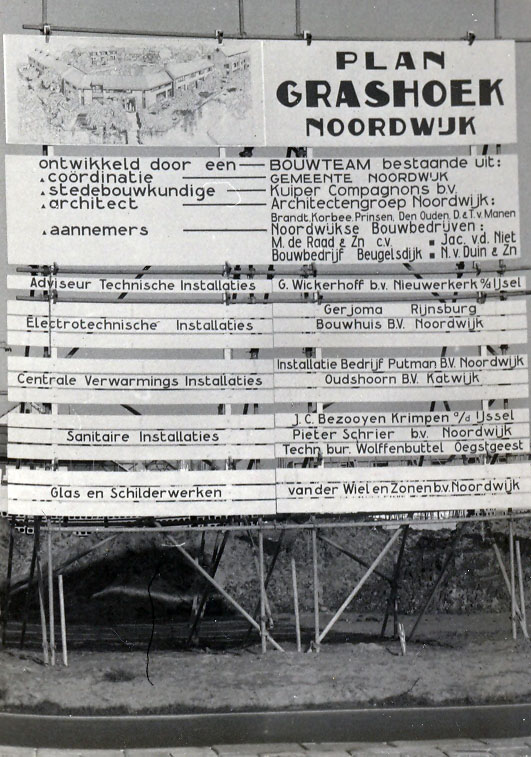 PLAN
GRASHOEK
NOORDWIJK
ontwikkeld door een — BOUWTEAM bestaande uit:
▴ coördinatie — GEMEENTE NOORDWIJK
▴ stedebouwkundige — Kuiper Compagnons b.v.
▴ architect — Architectengroep Noordwijk:
Brandt, Korbee, Prinsen, Den Ouden, D. & T. v. Manen
▴ aannemers — Noordwijkse Bouwbedrijven:
M. de Raad & Zn c.v. ▪ Jac. v.d. Niet
Bouwbedrijf Beugelsdijk ▪ N. v. Duin & Zn
Adviseur Technische Installaties G. Wickerhoff b.v. Nieuwerkerk a/d IJsel
Gerjoma Rijnsburg
Electrotechnische Installaties Bouwhuis B.V. Noordwijk
Installatie Bedrijf Putman B.V. Noordwijk
Centrale Verwarmings Installaties Oudshoorn B.V. Katwijk
J.C. Bezooyen Krimpen a/d IJssel
Sanitaire Installaties Pieter Schrier b.v. Noordwijk
Techn. bur. Wolffenbuttel Oegstgeest
Glas en Schilderwerken van der Wiel en Zonen b.v. Noordwijk